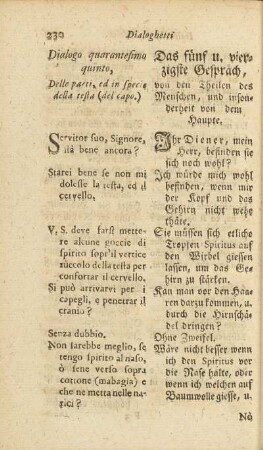 230 Dialoghetti
Dialogo quarantesimo
quinto,
Delle parti, ed in specie
della testa (del capo.)
Servitor suo, Signore,
stà bene ancora?
Starei bene se non mi
dolesse la testa, ed il
cervello.
V. S. deve farsi mette-
re alcune goccie di
spirito sopr'il vertice
zuccolo della testa per
confortar il cervello.
Si può arrivarvi per i
capegli, e penetrar il
cranio?
Senza dubbio.
Non sarebbe meglio, se
tengo spirito al naso,
ò tene verso sopra
cottone (mabagia) e
che ne metta nelle na-
rici?
Das fünf u. vier-
zigste Gespräch,
von den Theilen des
Menschen, und inson-
derheit von dem
Haupte.
Ihr Diener, mein
Herr, befinden sie
sich noch wohl?
Ich würde mich wohl
befinden, wenn mir
der Kopf und das
Gehirn nicht wehe
thäte.
Sie müssen sich etliche
Tropfen Spiritus auf
den Wirbel giessen
lassen, um das Ge-
hirn zu stärken.
Kan man vor den Haa-
ren darzu kommen, u.
durch die Hirnschä-
del dringen?
Ohne Zweifel.
Wäre nicht besser wenn
ich den Spiritus vor
die Nase halte, oder
wenn ich welchen auf
Baumwolle giesse, u.
Nò